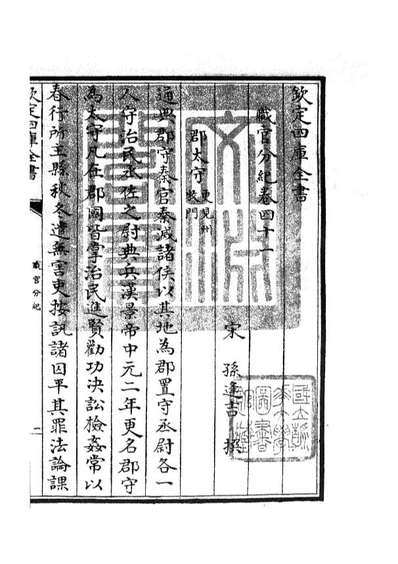 欽定四庫全書
職官分紀卷四十一
宋 孫逢吉 撰
郡太守
更見州
牧門
通典郡守秦官秦滅諸侯以其地為郡置守丞尉各一
人守治民丞佐之尉典兵漢景帝中元二年更名郡守
為太守凡在郡國皆掌治民進賢勸功決訟檢姦常以
春行所主縣秋冬遣無害吏按訊諸囚平其罪法論課
欽定四庫全書
職官分紀
文淵閣寶